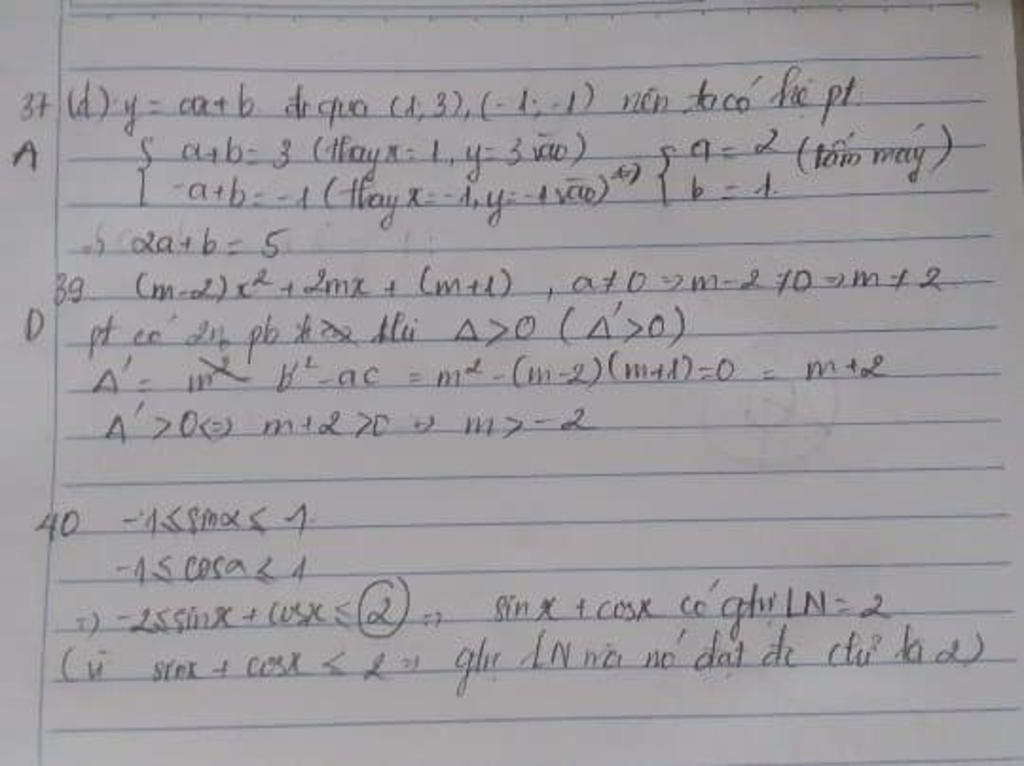 37 (d) y = ax + b đi qua (1; 3), (-1; -1) nên ta có hệ pt
A { a+b = 3 (thay x = 1, y = 3 vào)
{ -a+b = -1 (thay x = -1, y = -1 vào) <=> { a = 2 { b = 1 (bấm máy)
=> 2a + b = 5
39 (m-2)x² + 2mx + (m+1), a ≠ 0 => m-2 ≠ 0 => m ≠ 2
D pt có 2n pb khi Δ > 0 (Δ' > 0)
Δ' = b'² - ac = m² - (m-2)(m+1) = 0 = m+2
Δ' > 0 <=> m+2 > 0 => m > -2
40 -1 ≤ sinα ≤ 1
-1 ≤ cosα ≤ 1
=> -2 ≤ sinx + cosx ≤ 2 => sinx + cosx có gtrị LN = 2
(vì sinx + cosx ≤ 2 => gtrị LN mà nó đạt đc chỉ là 2)